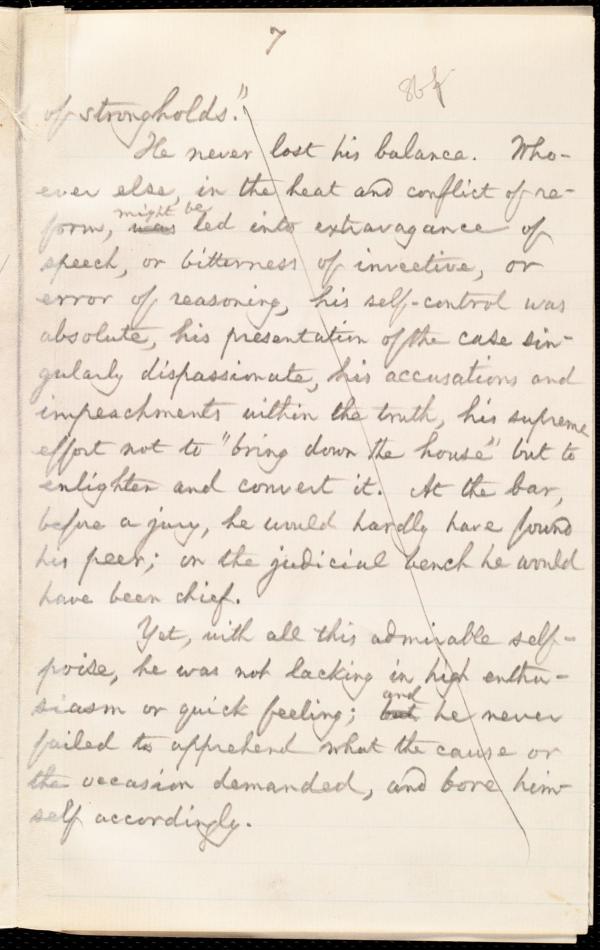 7
of strongholds."
He never lost his balance. Who-
ever else, in the heat and conflict of re-
might be
form, was led into extravagance of
speech, or bitterness of invective, or
error of reasoning, his self-control was
absolute, his presentation of the case sin-
gularly dispassionate, his accusations and
impeachments within the truth, his supreme
effort not to "bring down the house" but to
enlighten and convert it. At the bar,
before a jury, he would hardly have found
his peer; on the judicial bench he would
have been chief.
Yet, with all this admirable self-
poise, he was not lacking in high enthu-
and
siasm or quick feeling; but he never
failed to apprehend what the cause or
the occasion demanded, and bore him-
self accordingly.